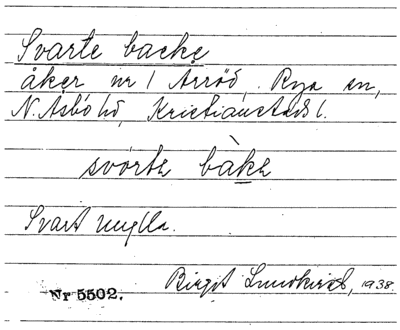 Svarte backe
åker nr 1 Arröd, Rya sn,
N. Åsbo hd, Kristianstads l.
svórte bàke
Svart mylla.
Birgit Lundkvist, 1938
Nr 5502.